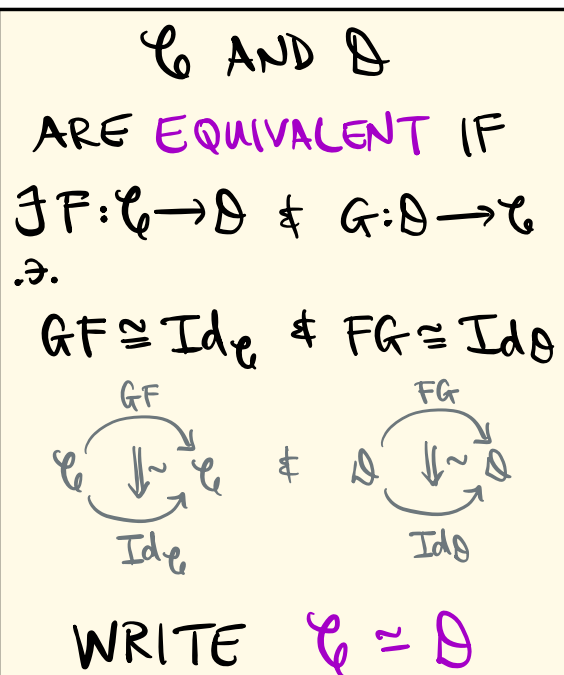 𝒞 AND 𝒟
ARE EQUIVALENT IF
∃ F: 𝒞 → 𝒟 & G: 𝒟 → 𝒞
.∋.
GF ≅ Id𝒞 & FG ≅ Id𝒟
GF FG
𝒞 ⇓~ 𝒞 & 𝒟 ⇓~ 𝒟
Id𝒞 Id𝒟
WRITE 𝒞 ≃ 𝒟